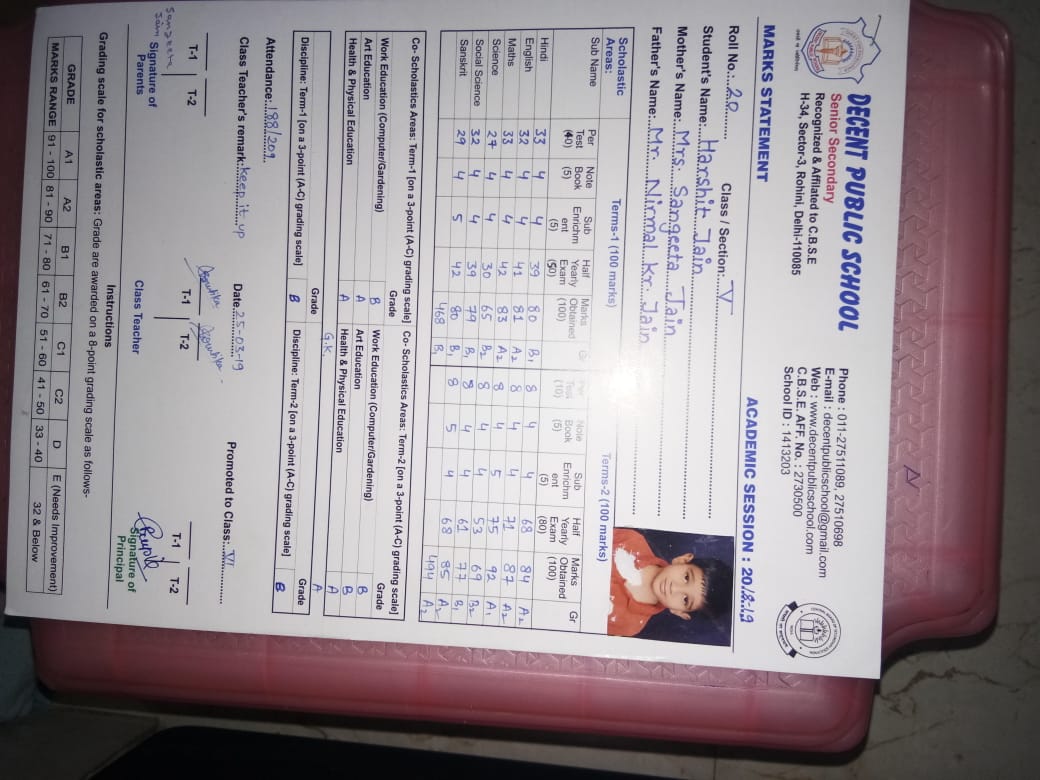 DECENT PUBLIC SCHOOL
Senior Secondary
Recognized & Affilated to C.B.S.E
H-34, Sector-3, Rohini, Delhi-110085
Phone : 011-27511089, 27510698
E-mail : decentpublicschool@gmail.com
Web : www.decentpublicschool.com
C.B.S.E. AFF. No. : 2730500
School ID : 1413203
MARKS STATEMENT
ACADEMIC SESSION : 2018-19
Roll No.: 20 Class / Section: V
Student's Name: Harshit Jain
Mother's Name: Mrs. Sangeeta Jain
Father's Name: Mr. Nirmal Kr. Jain
Scholastic Areas: Terms-1 (100 marks) Terms-2 (100 marks)
Sub Name Per Test (40) Note Book (5) Sub Enrichment (5) Half Yearly Exam (50) Marks Obtained (100) Gr Per Test (10) Note Book (5) Sub Enrichment (5) Half Yearly Exam (80) Marks Obtained (100) Gr
Hindi 33 4 4 39 80 B1 8 4 4 68 84 A2
English 32 4 4 41 81 A2 8 4 4 71 87 A2
Maths 33 4 4 42 83 A2 8 4 5 75 92 A1
Science 27 4 4 30 65 B2 8 4 4 53 69 B2
Social Science 32 4 4 39 79 B1 8 4 4 61 77 B1
Sanskrit 29 4 5 42 80 B1 8 5 4 68 85 A2
468 B1 494 A2
Co- Scholastics Areas: Term-1 [on a 3-point (A-C) grading scale] Grade Co- Scholastics Areas: Term-2 [on a 3-point (A-C) grading scale] Grade
Work Education (Computer/Gardening) B Work Education (Computer/Gardening) B
Art Education A Art Education B
Health & Physical Education A Health & Physical Education A
G.K. A
Grade Grade
Discipline: Term-1 [on a 3-point (A-C) grading scale] B Discipline: Term-2 [on a 3-point (A-C) grading scale] B
Attendance: 188/209
Class Teacher's remark: keep it up Date 25-03-19 Promoted to Class: VI
T-1 T-2 T-1 T-2 T-1 T-2
Sangeeta Jain
Signature of Parents
Class Teacher
Signature of Principal
Instructions
Grading scale for scholastic areas: Grade are awarded on a 8-point grading scale as follows-
GRADE A1 A2 B1 B2 C1 C2 D E (Needs Improvement)
MARKS RANGE 91 - 100 81 - 90 71 - 80 61 - 70 51 - 60 41 - 50 33 - 40 32 & Below